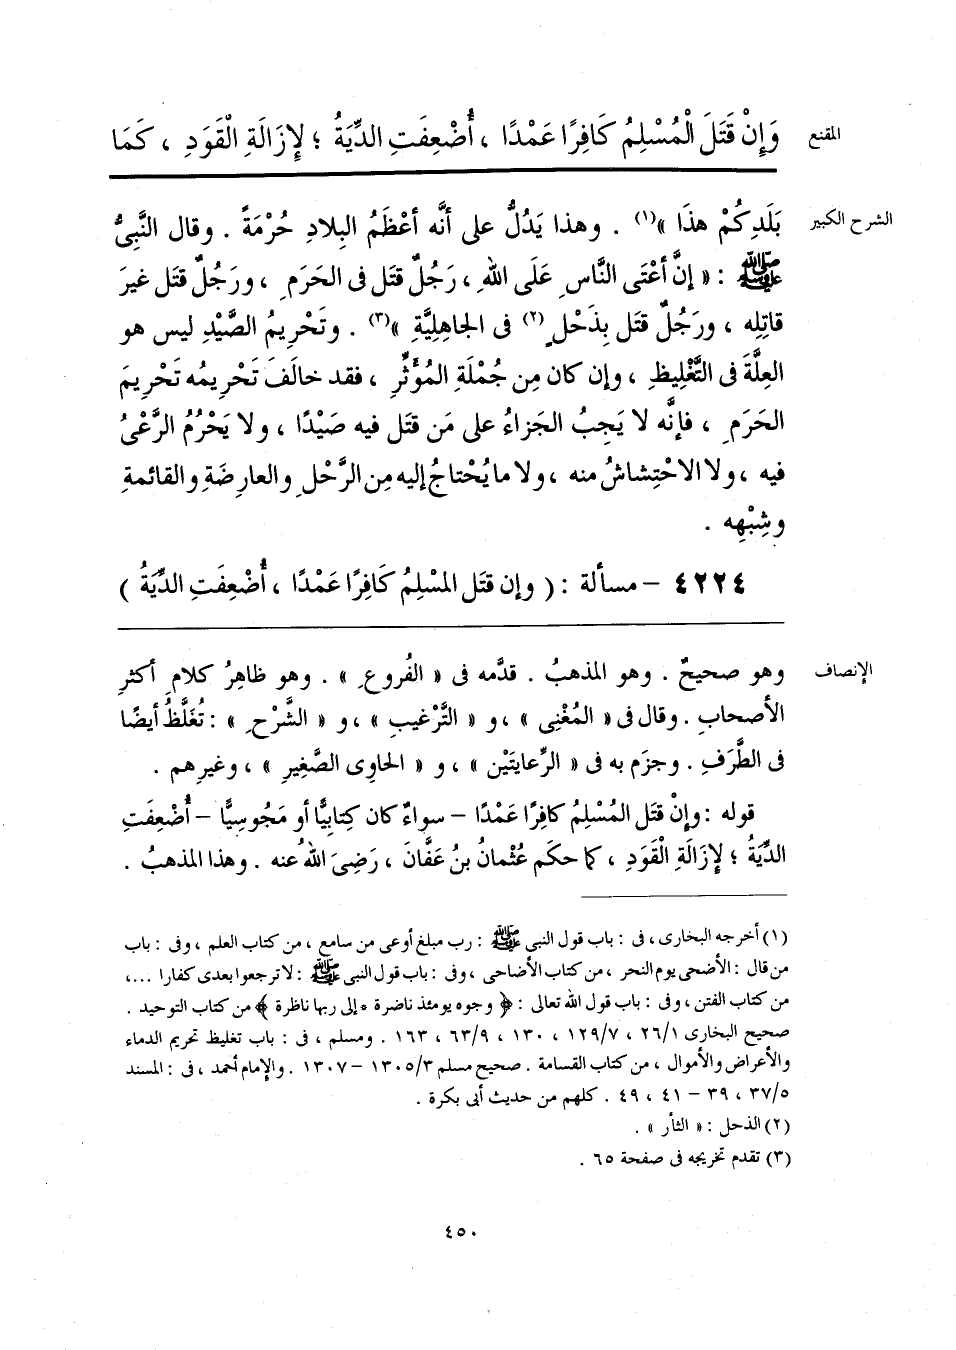 المقنع
وَإِنْ قَتَلَ الْمُسْلِمُ كَافِرًا عَمْدًا ، أُضْعِفَتِ الدِّيَةُ ؛ لِإِزَالَةِ الْقَوَدِ ، كَمَا
الشرح الكبير
بَلَدِكُمْ هٰذَا »(١) . وهذا يَدُلُّ على أنَّه أعْظَمُ البِلادِ حُرْمَةً . وقال النَّبِىُّ
ﷺ : « إنَّ أعْتَى النَّاسِ عَلَى اللهِ ، رَجُلٌ قتَل فى الحَرَمِ ، ورَجُلٌ قتَل غيرَ
قاتِلِه ، ورَجُلٌ قتَل بِذَحْلٍ(٢) فى الجاهِلِيَّةِ »(٣) . وتَحْرِيمُ الصَّيْدِ ليس هو
العِلَّةَ فى التَّغْلِيظِ ، وإن كان مِن جُمْلَةِ المُؤَثِّرِ ، فقد خالَفَ تَحْرِيمُه تَحْرِيمَ
الحَرَمِ ، فإنَّه لا يَجِبُ الجَزاءُ على مَن قتَل فيه صَيْدًا ، ولا يَحْرُمُ الرَّعْىُ
فيه ، ولا الاحْتِشاشُ منه ، ولا ما يُحْتاجُ إليه مِن الرَّحْلِ والعارِضَةِ والقائمةِ
وشِبْهِه .
٤٢٢٤ – مسألة : ( وإن قتَل المسْلِمُ كَافِرًا عَمْدًا ، أُضْعِفَتِ الدِّيَةُ )
الإنصاف
وهو صحيحٌ . وهو المذهبُ . قدَّمه فى « الفُروعِ » . وهو ظاهِرُ كلامِ أكثرِ
الأصحابِ . وقال فى « المُغْنِى » ، و « التَّرْغيبِ » ، و « الشَّرْحِ » : تُغَلَّظُ أيضًا
فى الطَّرَفِ . وجزَم به فى « الرِّعايتَيْن » ، و « الحاوِى الصَّغِيرِ » ، وغيرِهم .
قوله : وإنْ قتَل المُسْلِمُ كافِرًا عَمْدًا – سواءٌ كان كِتابِيًّا أو مَجُوسِيًّا – أُضْعِفَتِ
الدِّيَةُ ؛ لِإِزَالَةِ الْقَوَدِ ، كما حكَم عُثْمانُ بنُ عَفَّانَ ، رَضِىَ اللهُ عنه . وهذا المذهبُ .
(١) أخرجه البخارى ، فى : باب قول النبى ﷺ : رب مبلغ أوعى من سامع ، من كتاب العلم ، وفى : باب
من قال : الأضحى يوم النحر ، من كتاب الأضاحى ، وفى : باب قول النبى ﷺ : لا ترجعوا بعدى كفارا ... ،
من كتاب الفتن ، وفى : باب قول الله تعالى : ﴿ وجوه يومئذ ناضرة * إلى ربها ناظرة ﴾ من كتاب التوحيد .
صحيح البخارى ٢٦/١ ، ١٢٩/٧ ، ١٣٠ ، ٦٣/٩ ، ١٦٣ . ومسلم ، فى : باب تغليظ تحريم الدماء
والأعراض والأموال ، من كتاب القسامة . صحيح مسلم ١٣٠٥/٣ – ١٣٠٧ . والإمام أحمد ، فى : المسند
٣٧/٥ ، ٣٩ – ٤١ ، ٤٩ . كلهم من حديث أبى بكرة .
(٢) الذحل : « الثأر » .
(٣) تقدم تخريجه فى صفحة ٦٥ .
٤٥٠